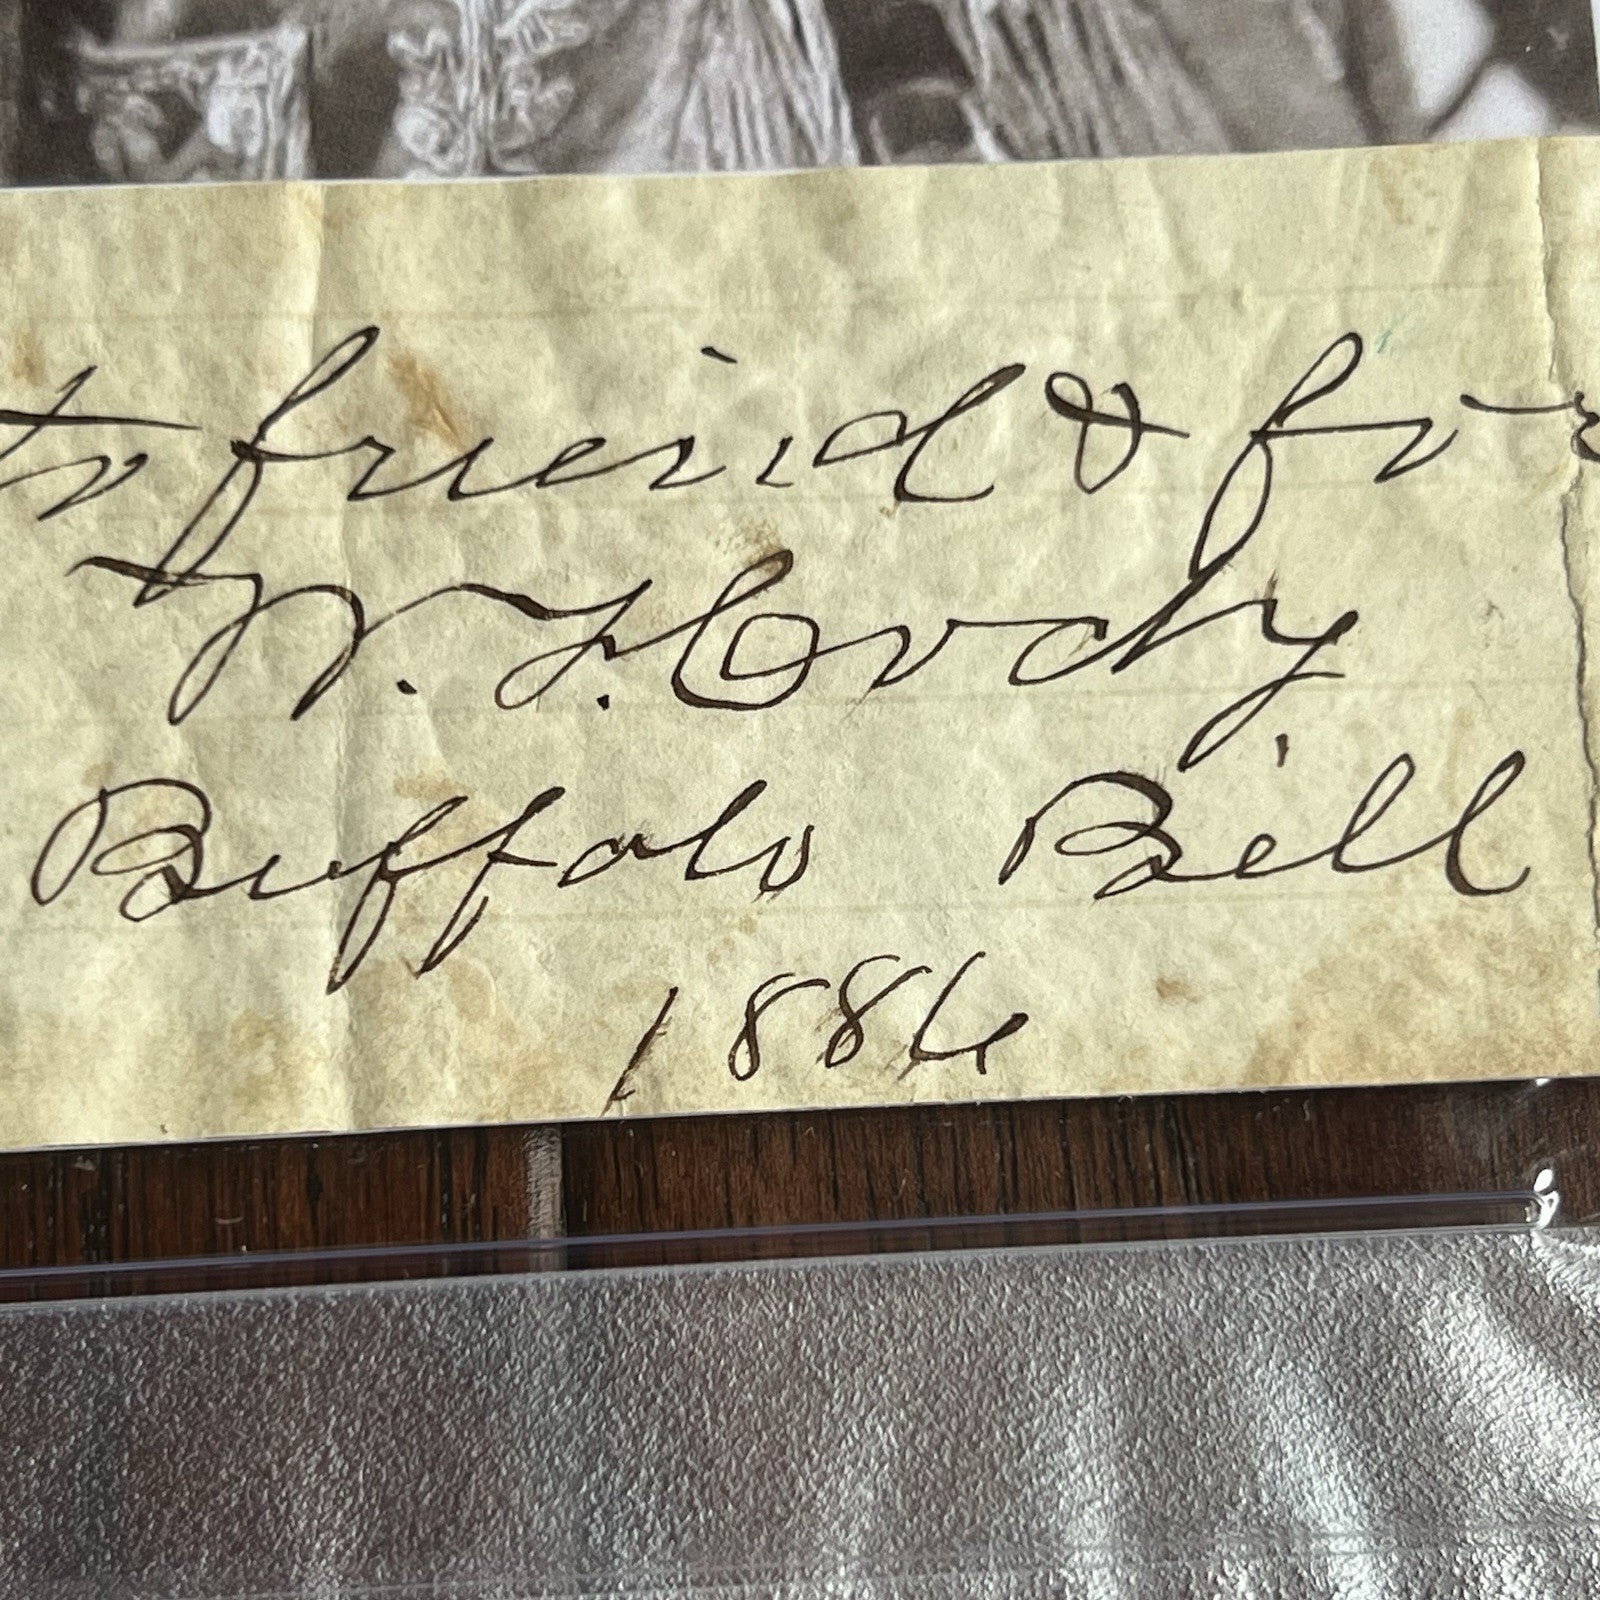 to friend & for
W. F. Cody
Buffalo Bill
1886